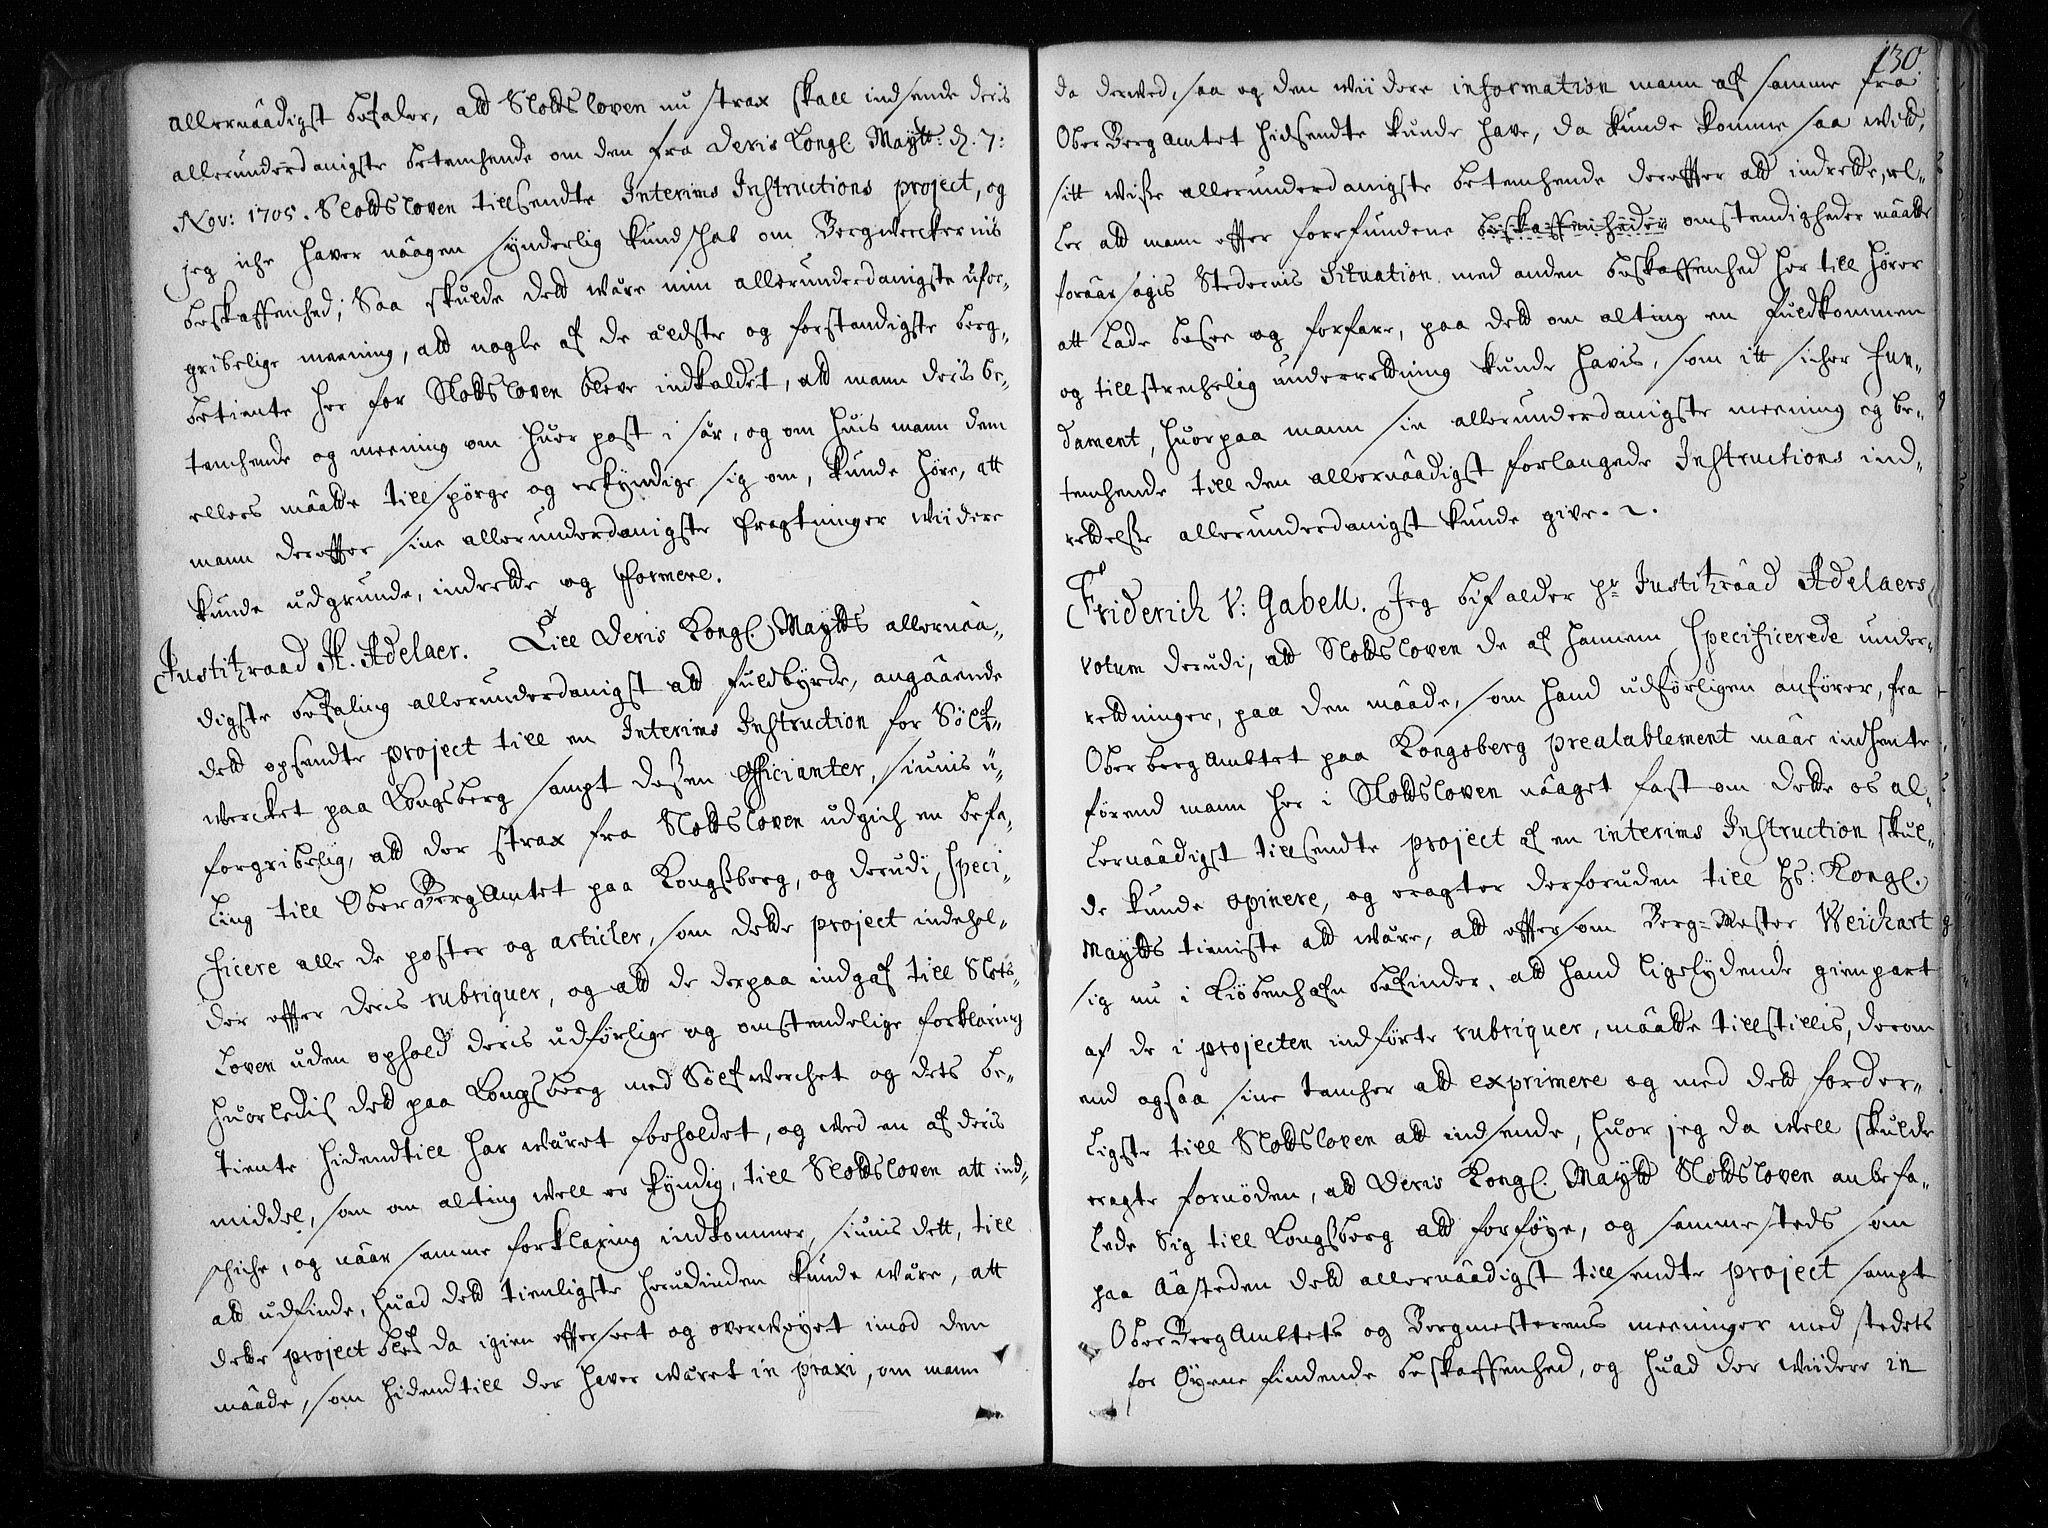 allernåadigst befaler, att Slottsloven nu strax skall indsende deris
allerunderdanigste betenchende om den fra Deris Kongl. Maytt: d. 7:
Nov: 1705. Slottsloven tillsendte Interims Instructions project, og
jeg iche haver nåagen synderlig kundschab om Bergverckernis
beskaffenhed; Saa skulde dett være min allerunderdanigste ufor-
gribelige meening, att nogle af de ældste og forstandigste berg-
betiente her for Slottsloven bleve indkaldet, att mann deris be-
tenchende og meening om huer post i sær, og om huis mann dem
ellers måatte tillspörge og erkyndige sig om, kunde höre, att
mann derefter sine allerunderdanigste fragtninger viidere
kunde udgrunde, indrette og formere.
Justitzraad H. Adelaer. Till Deris Kongl. Maytts allernåa-
digste befaling allerunderdanigst att fuldbyrde, angåaende
dett opsendte project till en Interims Instruction for Sölf-
vercket paa Kongsberg sampt dessen Officianter, siunis u-
forgribelig, att der strax fra Slottsloven udgich en befa-
ling till OberBergAmtet paa Kongssberg, og derudi speci-
ficere alle de poster og articler, som dette project indehol-
der efter deris rubriquer, og att de derpaa indgaf till Slots-
loven uden ophold deris udförlige og omstendelige forklaring
huorledis dett paa Kongsberg med Sölfverchet og dets be-
tiente hidendtill har været forholdet, og ved en af deris
middel, som om alting vell er kyndig, till Slottsloven att ind-
schiche, og nåar samme forklaring indkommer, siunis dett, till
att udfinde, huad dett tienligste herudinden kunde være, att
dette project blef da igien efterseet og overveyet imod den
måade, som hidendtill der haver været in praxi, om mann
130.
da derved, saa og den viidere information mann af samme fra
OberBergAmtet hidsendte kunde have, da kunde komme saa vit,
sitt visse allerunderdanigste betenchende derefter att indrette, el-
ler att mann efter forefundene beskaffenheder omstendigheder måatte
foråarsagis Stedernis Situation med anden beskaffenhed her till hörer
att lade besee og forfare, paa dett om alting en fuldkommen
og tillstrechelig underretning kunde havis, som itt sicher Fun-
dament, huorpaa mann sin allerunderdanigste meening og be-
tenchende till den allernåadigst forlangede Instructions ind-
rettelsse allerunderdanigst kunde give. 2.
Friderich V: Gabell. Jeg bifalder hr Justitzråad Adelaers
votum derudi, att Slottsloven de af hannem specificerede under-
retninger, paa den måade, som hand udförligen anförer, fra
OberbergAmbtet paa Kongsberg prealablement måae indhente
förend mann her i Slottsloven nåaget fast om dette os al-
lernåadigst tillsendte project af en interims Instruction skul-
de kunde opinere, og eragter derforuden till Hs: Kongl.
Maytts tieniste att være, att eftersom Berg-Mester Weichart
sig nu i Kiöbenhafn befinder, att hand ligelydende gienpart
af de i projecten indförte rubriquer, måatte tillstillis, derom
end ogsaa sine tancher att exprimere og med dett forder-
ligste till Slottsloven att indsende, huor jeg da vell skulde
eragte fornöden, att Deris Kongl. Maytt Slottsloven anbefa-
lede Sig till Kongssberg att forföye, og sammesteds som
paa Åasteden dett allernåadigst tillsendte project sampt
OberBergAmbtets og Bergmesterens meeninger med stedets
for Öyene findende beskaffenhed, og huad der viidere in